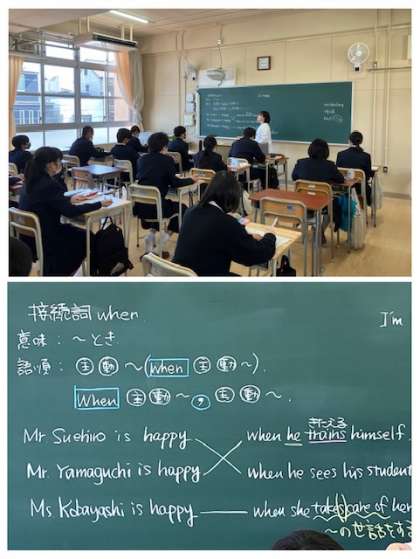 接続詞 when.
I'm
意味：〜とき
語順：主 動 〜(when 主 動 〜).
When 主 動 〜, 主 動 〜.
きたえる
Mr. Suehiro is happy when he trains himself.
Mr. Yamaguchi is happy when he sees his student
Ms Kobayashi is happy when she takes care of her
〜の世話をする